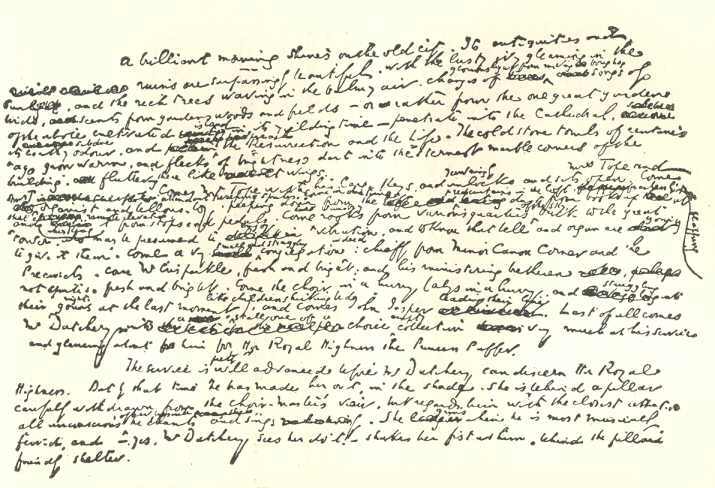 A brilliant morning shines on the old city. Its antiquities and
ruins are surpassingly beautiful, with the lusty ivy gleaming in the
sun, and the rich trees waving in the balmy air. Changes of glorious light from moving boughs, songs of
birds, scents from gardens woods and fields – or rather from the one great garden
of the whole cultivated island in its yielding time – penetrate into the Cathedral, subdue
its earthy odour, and preach the Resurrection and the Life. The cold stone tombs of centuries
ago grow warm; and flecks of brightness dart into the sternest marble corners of the
building, fluttering there like wings.
Comes Mr Tope with his large keys, and yawningly unlocks and sets open. Come Mrs Tope and
attendant sweeping sprites. Come, in due time, organist and bellows-boy, peeping down from the red curtains in the loft,
flapping dust from books up at that remote elevation,
and whisking it from stops and pedals. Come rooks from various quarters back to the great
tower; who may be presumed to enjoy vibration, and to know that bell and organ are going
to give it them. Come a very small and straggling congregation indeed: chiefly from Minor Canon Corner and the
Precincts. Come Mr Crisparkle, fresh and bright; and his ministering brethren,
not quite so fresh and bright. Come the choir, in a hurry (always in a hurry, and struggling into
their nightgowns at the last moment, like children shirking bed), and comes John Jasper leading their line. Last of all comes
Mr Datchery into a stall, one of a choice empty collection very much at his service
and glancing about him for Her Royal Highness the Princess Puffer.
The service is pretty well advanced before Mr Datchery can discern Her Royal
Highness. But by that time he has made her out, in the shade. She is behind a pillar
carefully withdrawn from the Choir-master's view, but regards him with the closest attention.
All unconscious of her presence, he chants and sings. She grins when he is most musically
fervid, and – yes, Mr Datchery sees her do it! – shakes her fist at him, behind the pillar's
friendly shelter.